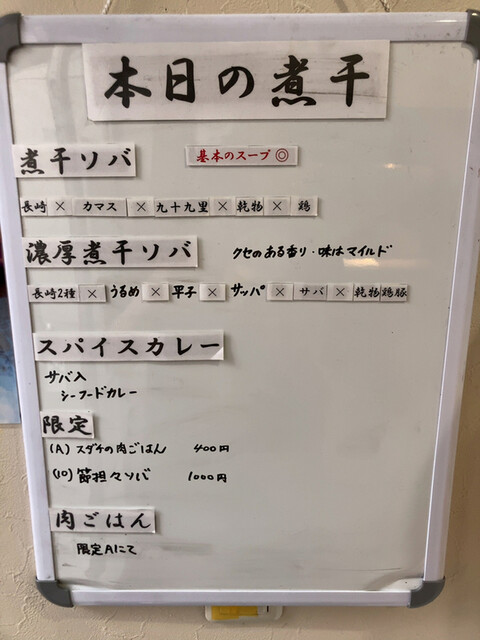 本日の煮干
煮干ソバ 基本のスープ◎
長崎 × カマス × 九十九里 × 乾物 × 鶏
濃厚煮干ソバ クセのある香り・味はマイルド
長崎2種 × うるめ × 平子 × サッパ × サバ × 乾物 鶏豚
スパイスカレー
サバ入
シーフードカレー
限定
(A) スダチの肉ごはん 400円
(10) 節担々ソバ 1000円
肉ごはん
限定Aにて